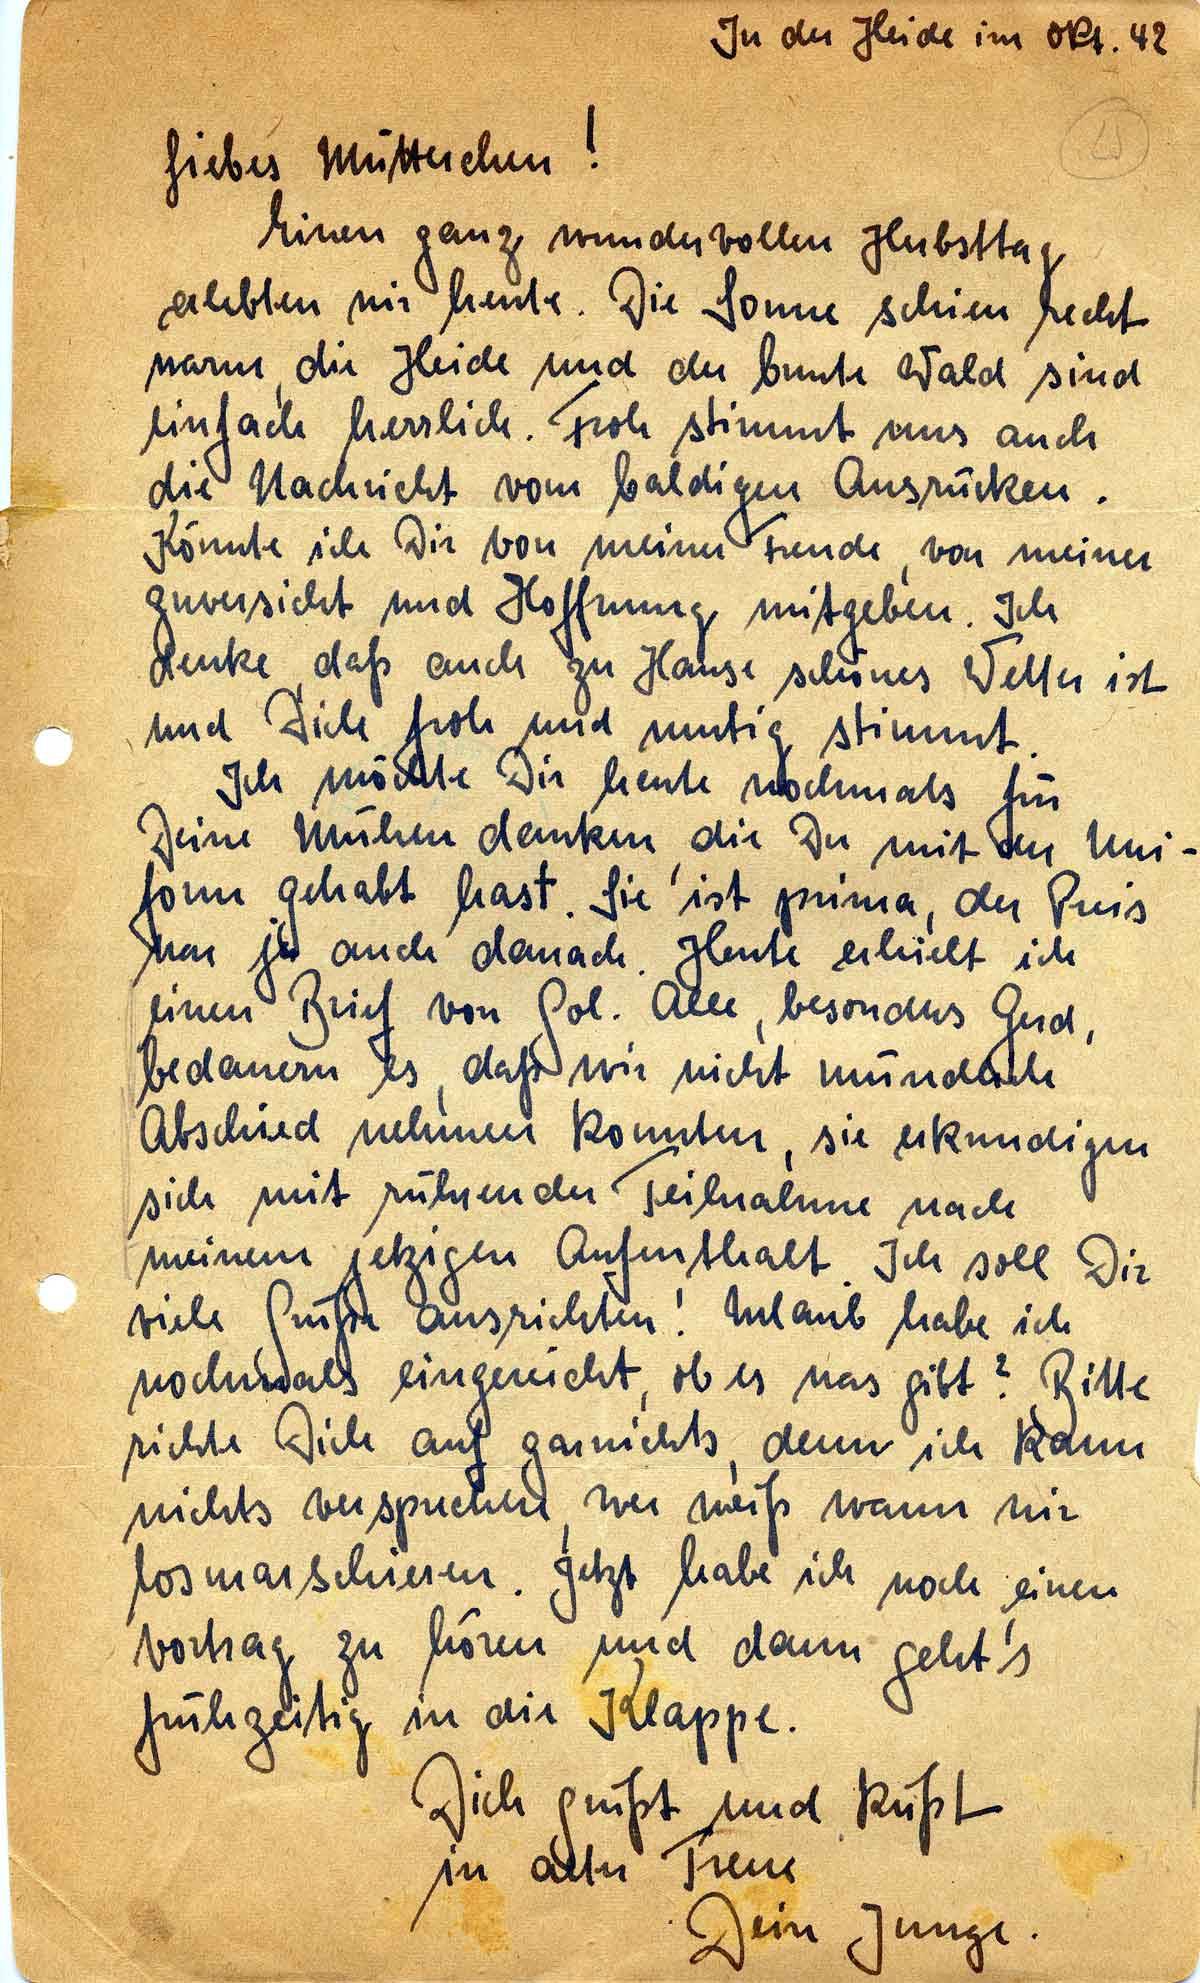 In der Heide im Okt. 42
Liebes Mütterchen!
Einen ganz wundervollen Herbsttag
erlebten wir heute. Die Sonne schien recht
warm, die Heide und der bunte Wald sind
einfach herrlich. Froh stimmt uns auch
die Nachricht vom baldigen Ausrücken.
Könnte ich Dir von meiner Freude, von meiner
Zuversicht und Hoffnung mitgeben. Ich
denke, daß auch zu Hause schönes Wetter ist
und Dich froh und mutig stimmt.
Ich möchte Dir heute nochmals für
Deine Mühen danken, die Du mit der Uni-
form gehabt hast. Sie ist prima, der Preis
war ja auch danach. Heute erhielt ich
einen Brief von Gol. Alle, besonders Gerd,
bedauern es, daß wir nicht mündlich
Abschied nehmen konnten, sie erkundigen
sich mit rührender Teilnahme nach
meinem jetzigen Aufenthalt. Ich soll Dir
viele Grüße ausrichten! Urlaub habe ich
nochmals eingereicht, ob es was gibt? Bitte
richte Dich auf garnichts, denn ich kann
nichts versprechen, wer weiß wann wir
losmarschieren. Jetzt habe ich noch einen
Vortrag zu hören und dann geht's
frühzeitig in die Klappe.
Dich grüßt und küßt
in alter Treue
Dein Junge.